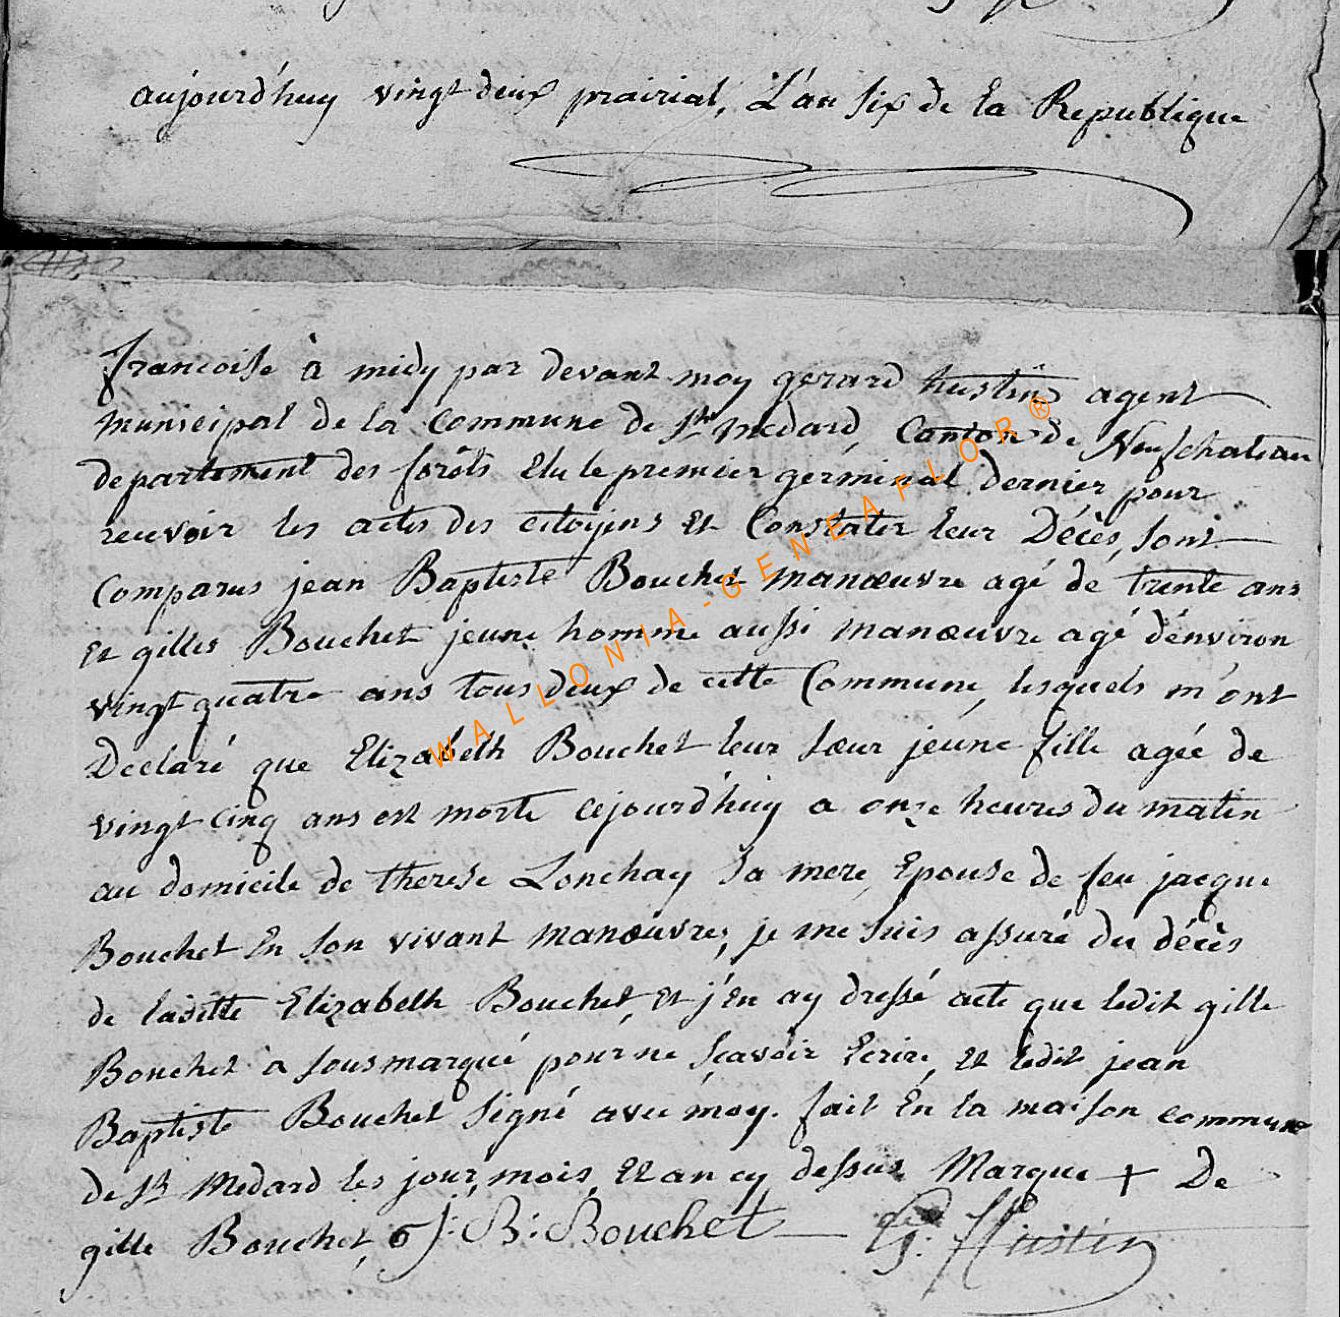 aujourd'huy vingt deux prairial, L'an six de la Republique
francoise à midy par devant moy gerard hustin agent
municipal de la commune de St medard, Canton de Neufchateau
departement des forêts Elu le premier germinal dernier pour
recevoir les actes des citoyens et Constater leur Décès, sont
Comparus jean Baptiste Bouchet manœuvre agé de trente ans
Et gilles Bouchet jeune homme aussi manœuvre agé d'environ
vingt quatre ans tous deux de cette Commune, lesquels m'ont
Declaré que Elizabeth Bouchet leur sœur jeune fille agée de
vingt cinq ans est morte cejourd'huy a onze heures du matin
au domicile de therese Lonchay sa mere, Epouse de feu jacque
Bouchet En son vivant manœuvre, je me suis assuré du décès
de laditte Elizabeth Bouchet, et j'En ay dressé acte que ledit gille
Bouchet a sousmarqué pour ne sçavoir Ecrire, et ledit jean
Baptiste Bouchet signé avec moy. fait En la maison commune
de St Medard les jour, mois, Et an cy dessus Marque + De
gille Bouchet, J: B: Bouchet G: Hustin
WALLONIA-GENEAFLOR®